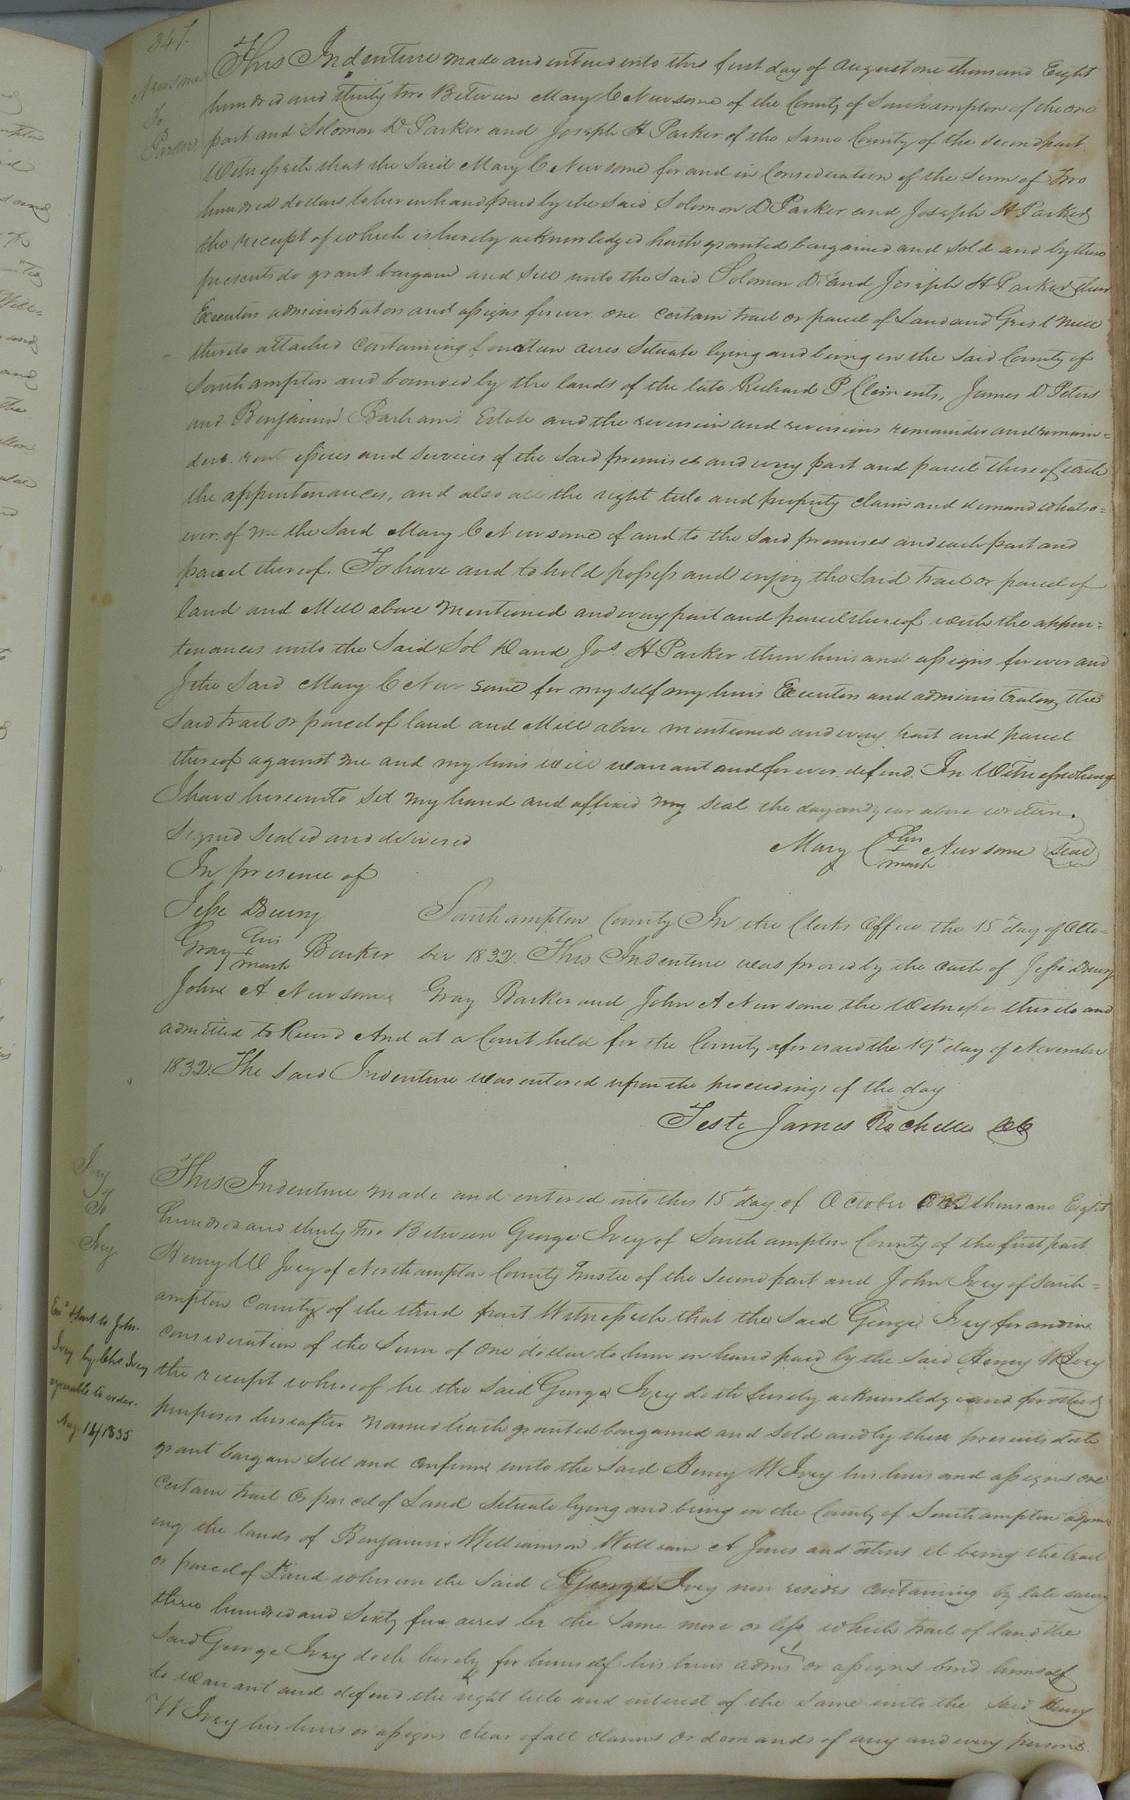 347.
Newsome
To
Parker
This Indenture made and entered into this first day of August one thousand Eight
hundred and thirty two Between Mary C Newsome of the County of Southampton of the one
part and Solomon D Parker and Joseph H Parker of the same County of the second part
Witnesseth that the said Mary C Newsome for and in Consideration of the sum of Two
hundred dollars to her in hand paid by the said Solomon D Parker and Joseph H Parker
the receipt of which is hereby acknowledged hath granted bargained and sold and by these
presents do grant bargain and sell unto the said Solomon D. and Joseph H Parker their
Executors administrators and assigns forever one certain tract or parcel of Land and Grist Mill
thereto attached Containing fourteen acres situate lying and being in the said County of
Southampton and bounded by the lands of the late Richard P Clements, James D Peters
and Benjamin Barham's Estate and the reversion and reversions remainder and remain=
ders rents issues and services of the said premises and every part and parcel thereof with
the appurtenances, and also all the right title and property claim and demand whatso=
ever of me the said Mary C Newsome of and to the said premises and each part and
parcel thereof. To have and to hold possess and enjoy the said tract or parcel of
land and Mill above mentioned and every part and parcel thereof with the appur=
tenances unto the said Sol D and Jos. H Parker their heirs and assigns forever and
I the said Mary C Newsome for myself my heirs Executors and administrators, the
said tract or parcel of land and Mill above mentioned and every part and parcel
thereof against me and my heirs will warrant and forever defend. In Witness whereof
I have hereunto set my hand and affixed my seal the day and year above written.
Signed Sealed and delivered
Mary C her + mark Newsome (Seal)
In presence of
Jesse Drewry
Southampton County In the Clerks Office the 15th day of Octo=
Gray his + mark Barker
ber 1832. This Indenture was proved by the oath of Jesse Drewry
John A Newsome
Gray Barker and John A Newsome the Witnesses thereto and
admitted to Record And at a Court held for the County aforesaid the 19th day of November
1832. The said Indenture was entered upon the proceedings of the day
Teste James Rochelle CC
Ivey
To
Ivey
This Indenture made and entered into this 15th day of October thousand Eight
hundred and thirty two Between George Ivey of Southampton County of the first part
Henry W Ivey of Northampton County Trustee of the second part and John Ivey of South=
ampton County of the third part Witnesseth that the said George Ivey for and in
Consideration of the sum of one dollar to him in hand paid by the said Henry W Ivey
the receipt whereof he the said George Ivey doth hereby acknowledge and for other
purposes hereafter named hath granted bargained and sold and by these presents doth
grant bargain sell and confirm unto the said Henry W Ivey his heirs and assigns one
certain tract or parcel of Land situate lying and being in the County of Southampton adjoin
ing the lands of Benjamin Williamson William A Jones and others it being the tract
or parcel of Land whereon the said George Ivey now resides containing by late survey
three hundred and sixty five acres be the same more or less which tract of land the
said George Ivey doth hereby for himself his heirs admrs or assigns bind himself
to warrant and defend the right title and interest of the same unto the said Henry
W Ivey his heirs or assigns clear of all claims or demands of any and every persons
Exd & sent to John
Ivey by Chs Ivey
agreeable to order.
Aug 14/1835